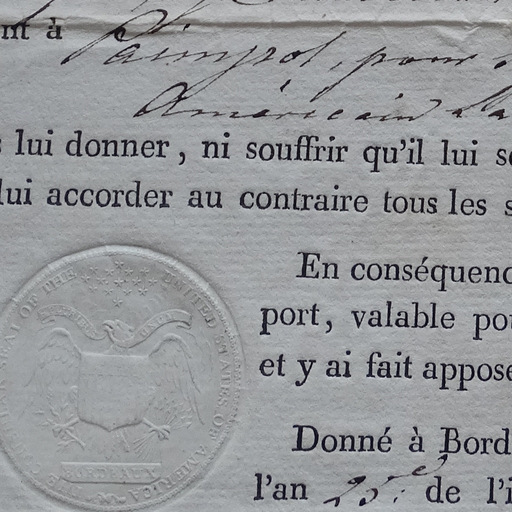 nt à Paimpol, pour
Américain
lui donner, ni souffrir qu'il lui s
lui accorder au contraire tous les s
En conséquenc
port, valable po
et y ai fait appose
Donné à Bord
l'an 25.e de l'i
SEAL OF THE UNITED STATES OF AMERICA